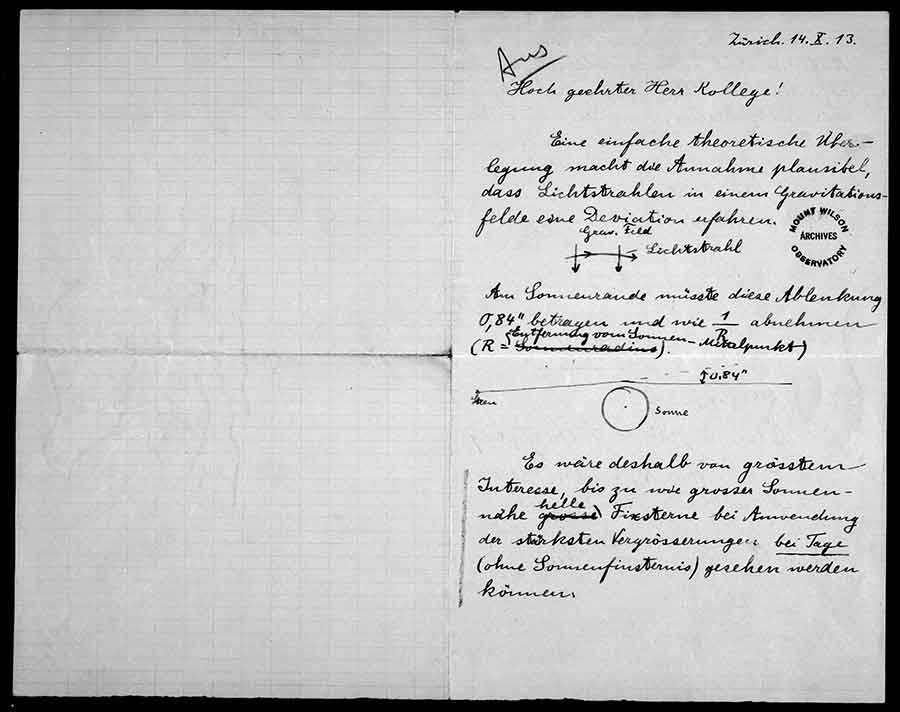 Zürich. 14. X. 13.
Hoch geehrter Herr Kollege!
Eine einfache theoretische Über-
legung macht die Annahme plausibel,
dass Lichtstrahlen in einem Gravitations-
felde eine Deviation erfahren.
MOUNT WILSON
ARCHIVES
OBSERVATORY
Grav. Feld
Lichtstrahl
Am Sonnenrande müsste diese Ablenkung
0,84" betragen und wie 1/R abnehmen
Entfernung vom Sonnen-Mittelpunkt)
(R = Sonnenradius).
0.84"
Stern
Sonne
Es wäre deshalb von grösstem
Interesse, bis zu wie grosser Sonnen-
helle
nähe grosse Fixsterne bei Anwendung
der stärksten Vergrösserungen bei Tage
(ohne Sonnenfinsternis) gesehen werden
können.